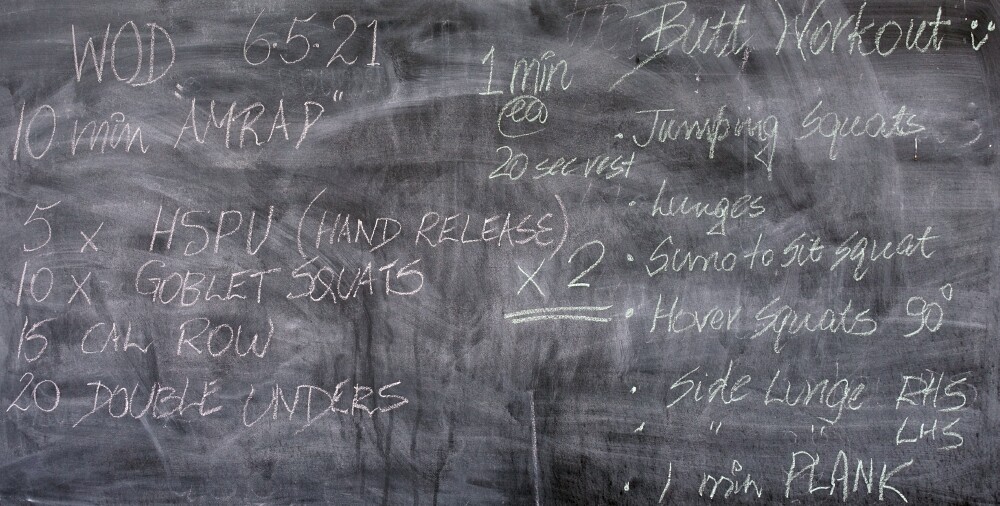 WOD 6.5.21
10 min "AMRAP"
5 x HSPU (HAND RELEASE)
10 x GOBLET SQUATS
15 CAL ROW
20 DOUBLE UNDERS
Butt Workout
1 min
20 sec rest
x 2
• Jumping Squats
• Lunges
• Sumo to sit squat
• Hover Squats 90°
• Side Lunge RHS
• " " LHS
• 1 min PLANK